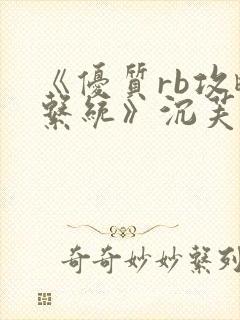 《優質rb攻
繫統》沉芙
奇奇妙妙繫列